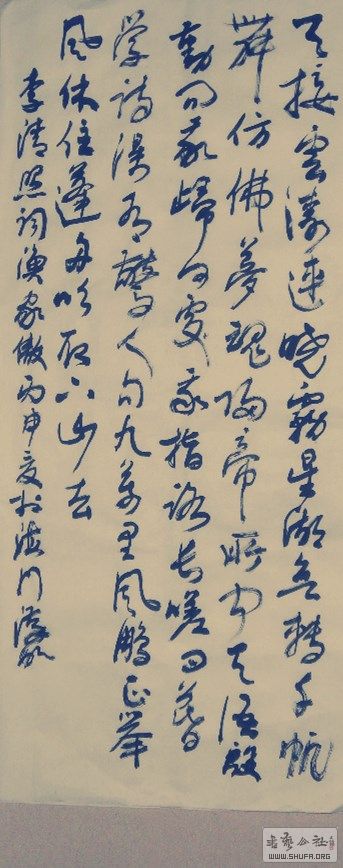 天接雲濤連曉霧星河欲轉千帆
舞仿佛夢魂歸帝所聞天語殷
勤問我歸何處我報路長嗟日暮
学詩謾有驚人句九萬里風鵬正舉
風休住蓬舟吹取三山去
李清照詞漁家傲丙申夏於津門
書藝公社
WWW.SHUFA.ORG